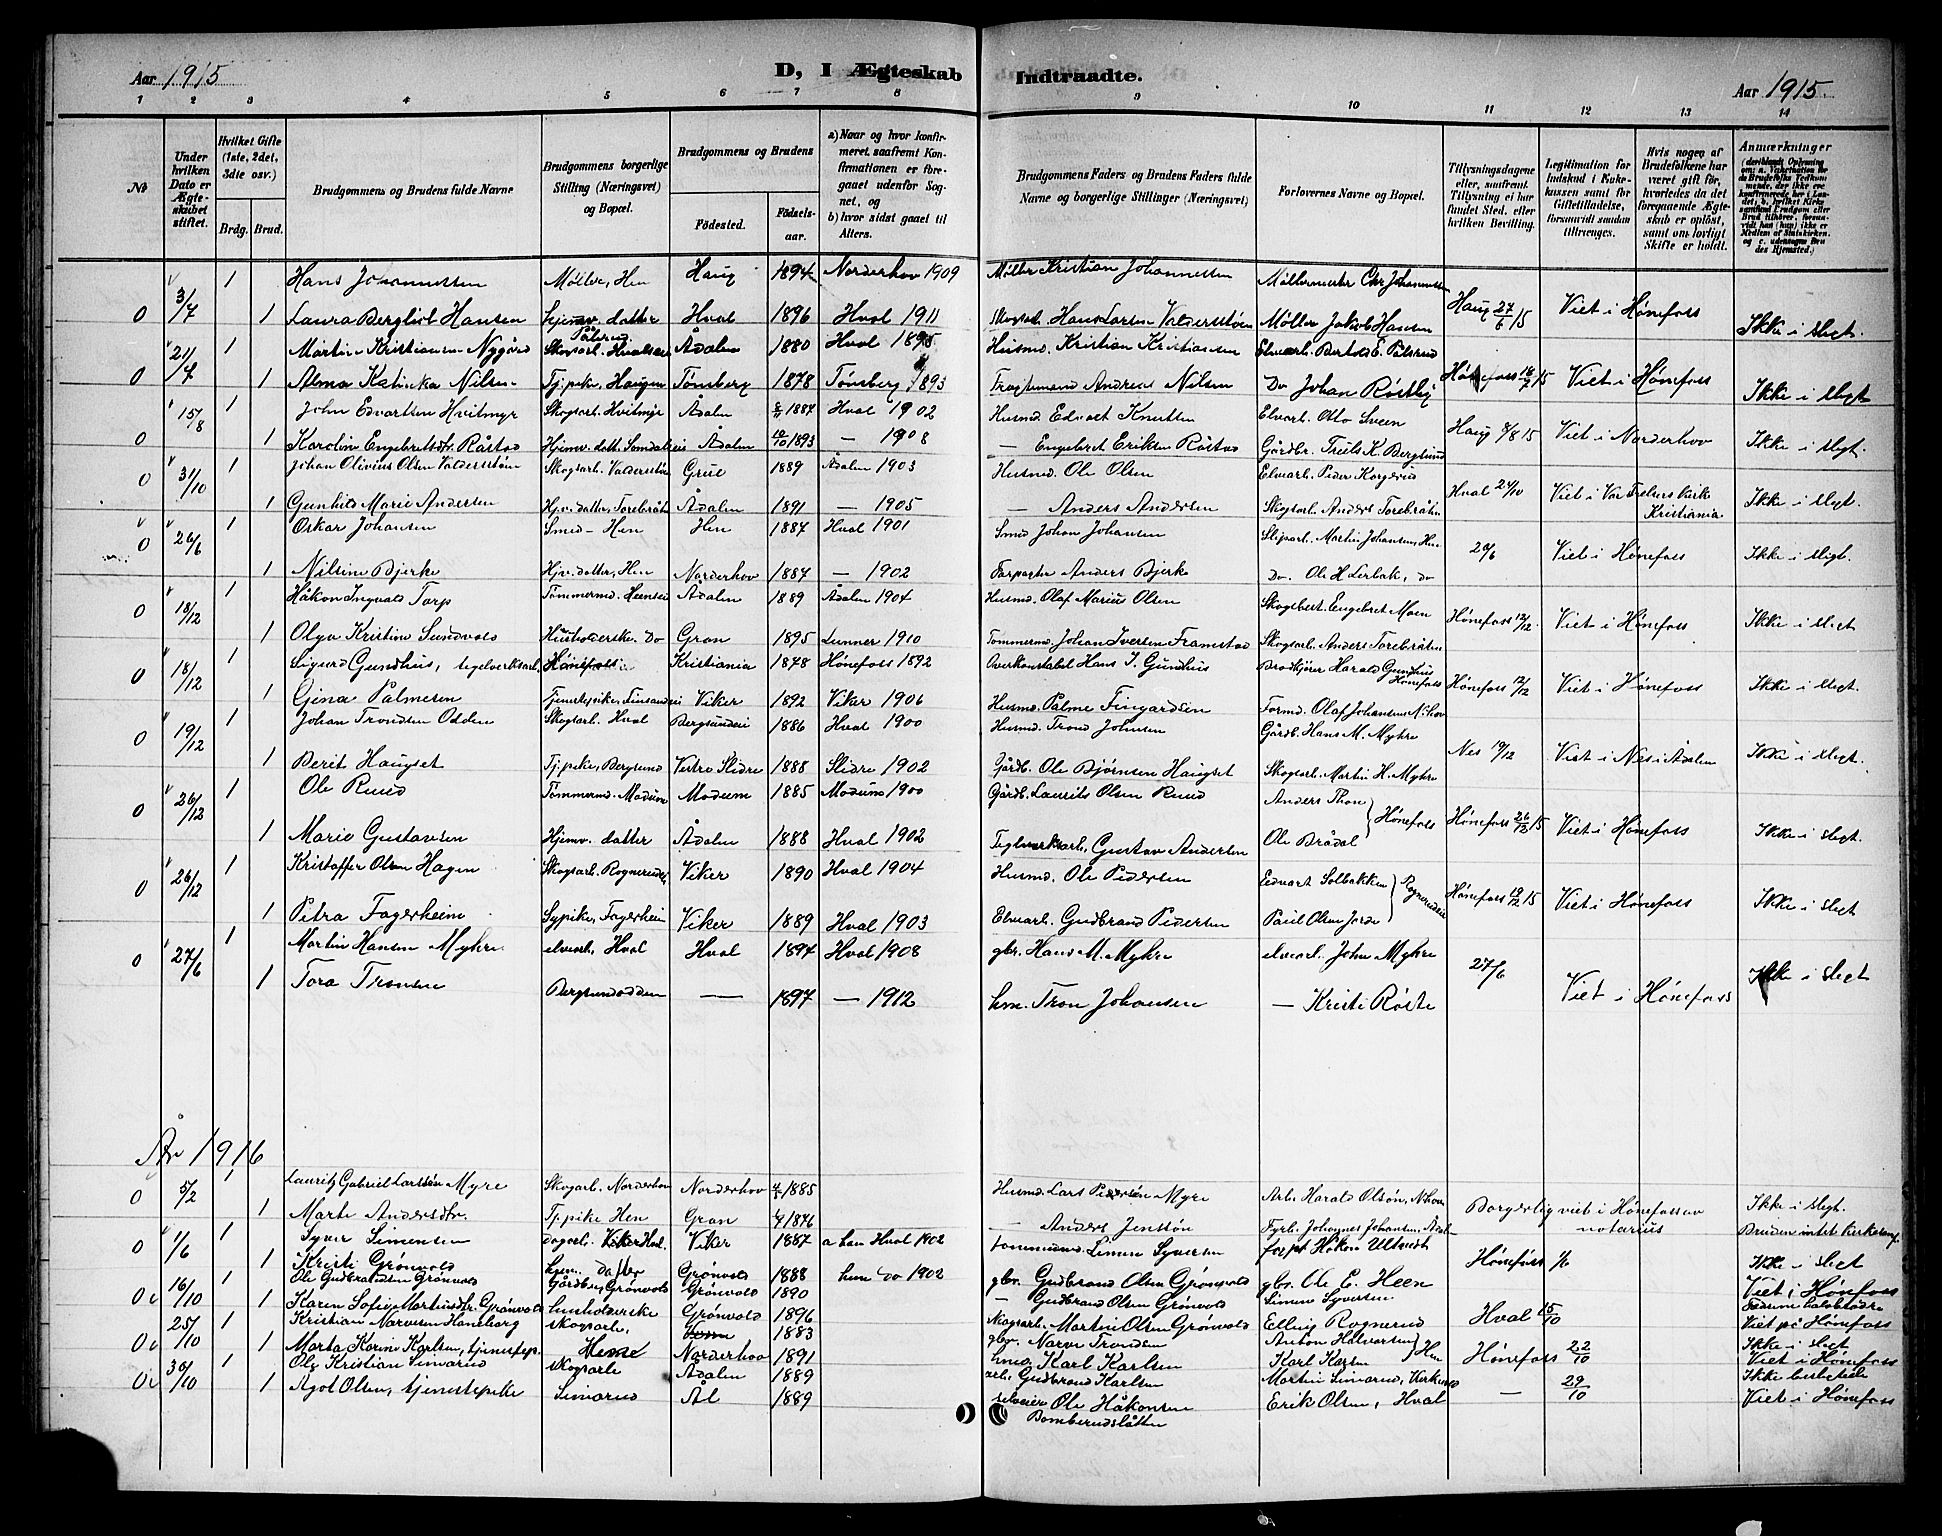 Aar 1915 D, I Ægteskab Indtraadte. Aar 1915.
1 2 3 4 5 6 7 8 9 10 11 12 13 14
No
Under hvilken Dato er Ægteskabet stiftet.
Hvilket Gifte (1ste, 2det, 3die osv.)
Brdg. Brud.
Brudgommens og Brudens fulde Navne
Brudgommens borgerlige Stilling (Næringsvei) og Bopæl.
Brudgommens og Brudens
Fødested. Fødselsaar.
a) Naar og hvor konfirmeret, saafremt Konfirmationen er foregaaet udenfor Sognet, og
b) hvor sidst gaaet til Alters.
Brudgommens Faders og Brudens Faders fulde Navne og borgerlige Stillinger (Næringsvei)
Forlovernes Navne og Bopæl.
Tillysningsdagene eller, saafremt Tillysning ei har fundet Sted, efter hvilken Bevilling.
Legitimation for Indskud i Enkekassen samt for Giftetilladelse, forsaavidt saadan tiltrænges.
Hvis nogen af Brudefolkene har været gift før, hvorledes da det foregaaende Ægteskab er opløst, samt om lovligt Skifte er holdt.
Anmærkninger
0 3/7 1 Hans Johannessen Møller, Hen Haug 1894 Norderhov 1909 Møller Kristian Johannessen Møllermester Chr Johannessen Haug 27/6 15 Viet i Hønefoss Ikke i slegt.
1 Laura Bergliot Hansen hjemv. datter Hval 1896 Hval 1911 Skogsarb. Hans Larsen Valdersstøen Møller Jakob Hansen
0 21/7 1 Martin Kristiansen Nygård Skogsarb. Hvalseie Ådalen 1880 Hval 1895 Husmd. Kristian Kristiansen Elvearb. Berthold E. Pålsrud Hønefoss 18/7 15 Viet i Hønefoss Ikke i slegt
1 Alma Katinka Nilsen Tj.pike, Haugen Tønsberg 1878 Tønsberg 1893 Andreas Nilsen Do Johan Røstby
0 15/8 1 John Edvartsen Hvitmyr Skogsarb. Hvitmyr Ådalen 1887 Hval 1902 Husmd. Edvart Knutsen Elvearb. Otto Sveen Haug 8/8 15 Viet i Norderhov Ikke i slegt.
1 Karoline Engebretsdtr. Råstad Hjemv. datt. Somdalseie Ådalen 10/10 1893 — 1908 — Engebret Eriksen Råstad Gårdbr. Truls K. Bergsund
0 31/10 1 Johan Olivius Olsen Valdersstøen Skogsarb. Valdersstøen Grue 1889 Ådalen 1903 Husmd. Ole Olsen Elvearb. Peder Korgerud Hval 24/10 Viet i Vor Frelsers Kirke Kristiania Ikke i slegt.
1 Gunhild Marie Andersen Hjv. datter, Torebråten Ådalen 1891 — 1905 — Anders Andersen Skogsarb. Anders Torebråten
0 26/6 1 Oskar Johansen Smed — Hen Hen 1887 Hval 1901 Smed Johan Johansen Sliparb. Martin Johansen, Hen 20/6 Viet i Hønefoss Ikke i slegt.
1 Nilsine Bjerke Hjv. datter, Hen Norderhov 1887 — 1902 Forpagter Anders Bjerke Do. Ole H Lerbak, Do
0 18/12 1 Håkon Ingvald Torp Tømmermd. Heenseie Ådalen 1889 Ådalen 1904 Husmd. Olaf Marius Olsen Skogsbest. Engebret Moen Hønefoss 12/12. Viet i Hønefoss Ikke i slegt
1 Olga Kristine Sundvold Husholderske Do Gran 1895 Lunner 1910 Tømmermd. Johan Iversen Framstad Skogsarb. Anders Torebråten
0 18/12 1 Sigurd Gundhus, tegelverksarb. Hønefoss Kristiania 1878 Hønefoss 1892 Overkonstabel Hans I. Gundhus Brødkjører Harald Gundhus Hønefoss Hønefoss 12/12 Viet i Hønefoss Ikke i slegt.
1 Gina Palmesen Tjenestepike, Finsandeie Viker 1892 Viker 1906 Husmd. Palme Fingardsen Formd. Olaf Johansen N.hov
0 19/12 1 Johan Trondsen Odden Skogsarb. Hval Bergsundeie 1886 Hval 1900 Husmd. Trond Johnsen Gårdb. Hans M. Myhre Nes 19/12 Viet i Nes i Ådalen Ikke i slegt.
1 Berit Haugset Tj.pike, Bergsund Vestre Slidre 1888 Slidre 1902 Gårdb. Ole Bjørnsen Haugset Skogsarb. Martin H. Myhre
0 26/12 1 Ole Ruud Tømmermd. Modum Modum 1885 Modum 1900 Gårdb. Laurits Olsen Ruud Anders Thon Hønefoss Hønefoss 26/12 15 Viet i Hønefoss Ikke i slegt
1 Marie Gustavsen Hjemv. datter Ådalen 1888 Hval 1902 Teglverksarb. Gustav Andersen Ole Brådal
0 26/12 1 Kristoffer Olsen Hagen Skogsarb. Rognerudeie Viker 1890 Hval 1904 Husmd. Ole Pedersen Edvart Solbakken Rognerudeie Hønefoss 19/12 15 Viet i Hønefoss Ikke i slegt
1 Petra Fagerheim Sypike, Fagerheim Viker 1889 Hval 1903 Elvearb. Gudbrand Pedersen Paul Olsen Jorde
0 27/6 1 Martin Hansen Myhre elvearb. Hval Hval 1894 Hval 1908 gbr. Hans M. Myhre elvearb. John Myhre 27/6 Viet i Hønefoss Ikke i slegt
1 Tora Tronsen Bergsundodden — 1897 — 1912 hm. Tron Johansen — Kristi Røste
År 1916
0 5/2 1 Lauritz Gabriel Larssen Myre Skogarb. Norderhov Norderhov 1885 Husmd. Lars Pedersen Myre Arb. Harald Olsøn, N.hov Borgerlig viet i Hønefoss av notarius Ikke i slegt.
1 Marte Andersdtr. Tj.pike Hen Gran 1876 — Anders Jenssøn Fyrb. Johannes Johansen, Ådal Bruden intet kirkesamf.
0 1/6 1 Syver Simensen dagarb. Viker Hval. Viker 1887 a han Hval 1902 tømmermd. Simen Syversen forpt Håkon Ultvedt Hønefoss 1/6 Ikke i slegt
1 Kristi Grønvold hjem. datter Grønvold 1888 hun do 1902 gbr. Gudbrand Olsen Grønvold gbr. Ole E. Heen Viet i Hønefoss
0 16/10 1 Ole Gudbrandsen Grønvold Gårdbr, Grønvold Grønvold 1890 — Gudbrand Olsen Grønvold Simen Syversen Hval 15/10
1 Karen Sofie Martinsdtr. Grønvold husholderske Grønvold 1896 Skogsarb. Martin Olsen Grønvold Elling Rognerud Viet på Hønefoss
0 25/10 1 Kristian Narvesen Hansborg skogsarb. 1883 gbr. Narve Trondsen Anton Halvorsen Hen Hønefoss 22/10 Ikke i slegt
1 Marta Karine Karlsen, tjenestep. Norderhov 1891 Karl Karlsen Karl Karlsen Viet i Hønefoss
0 30/10 1 Ole Kristian Simarud skogsarb Ådalen 1889 arb. Gudbrand Karlsen Martin Simarud, 29/10 Ikke beslegtede
1 Agot Olsen, tjenestepike Simarud Ål 1889 selveier Ole Håkonsen Bomberudslåtten Erik Olsen, Hval — Viet i Hønefoss